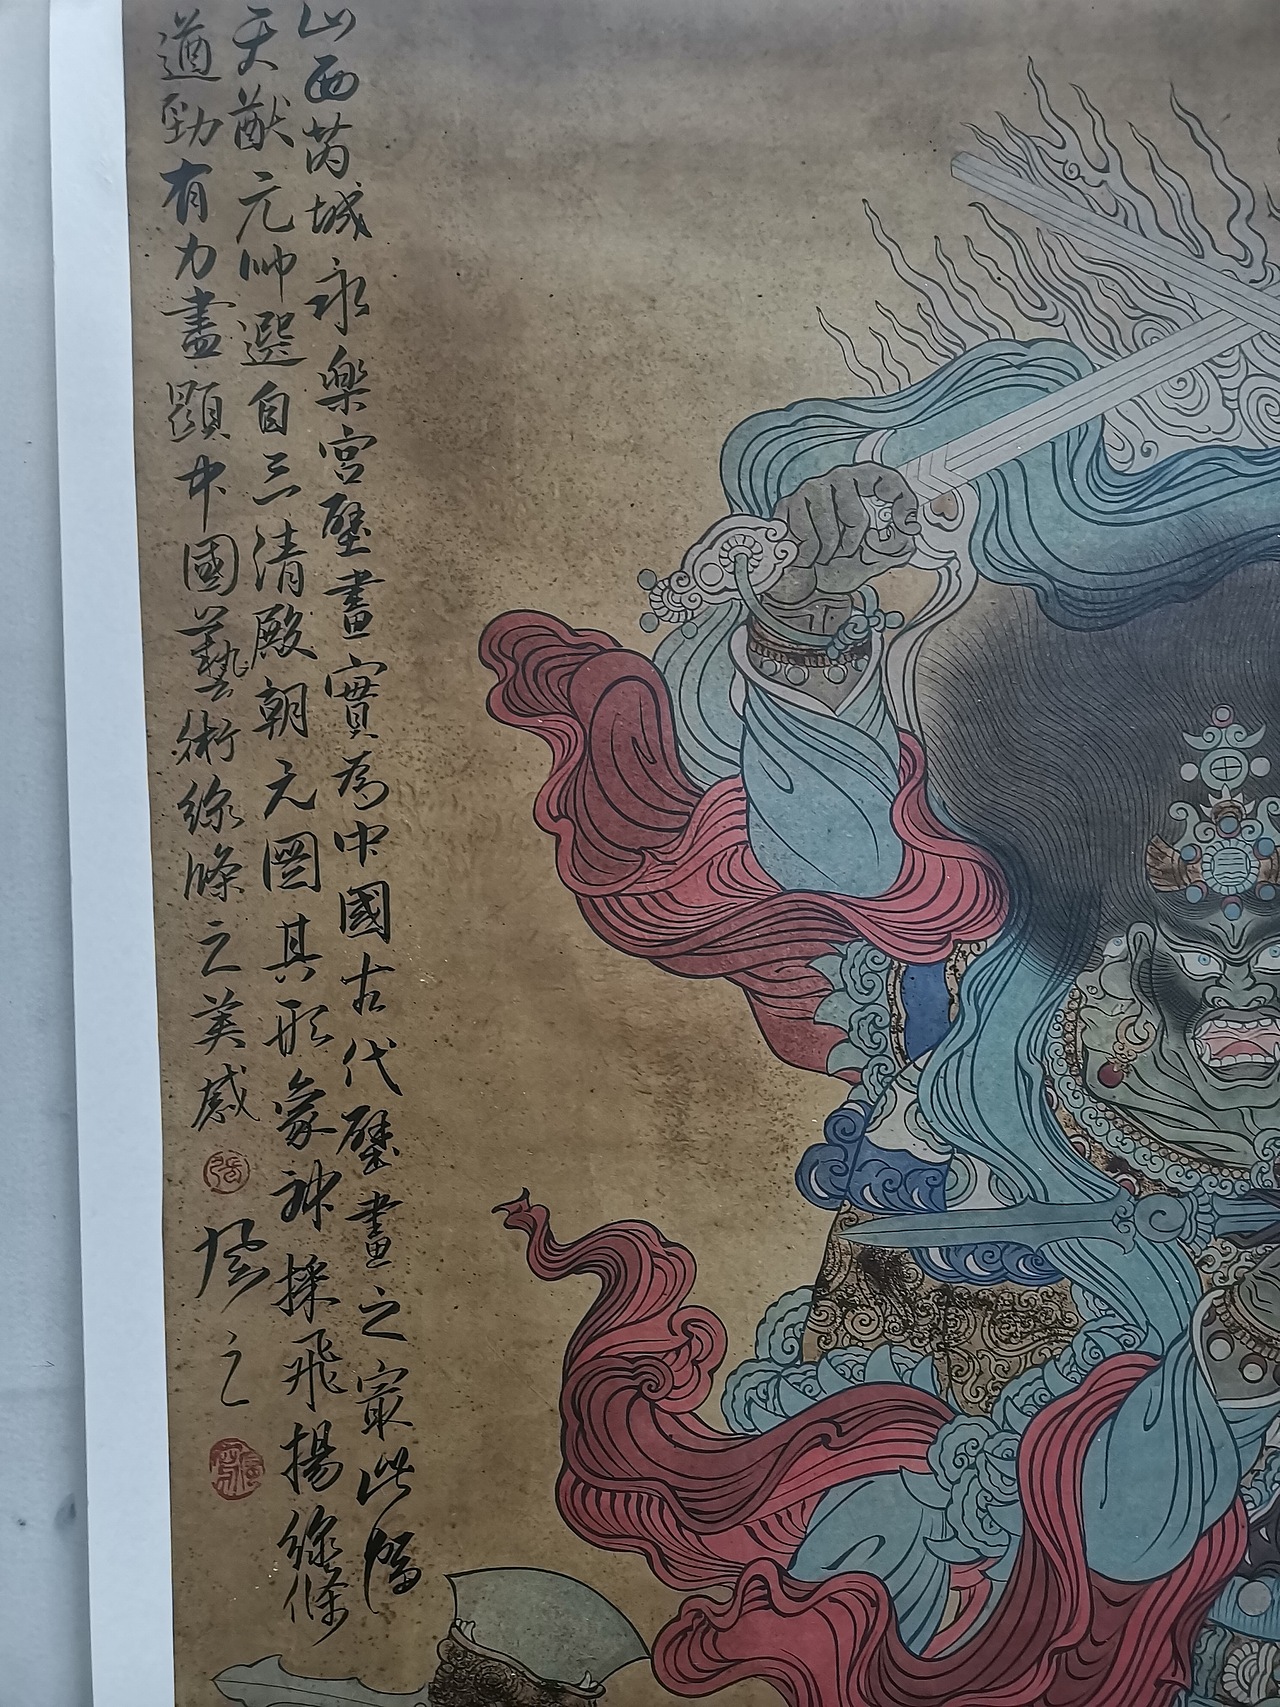 山西芮城永樂宮壁畫實為中國古代壁畫之最此幅
天猷元帥選自三清殿朝元圖其形象神採飛揚線條
遒勁有力盡顯中國藝術線條之美感